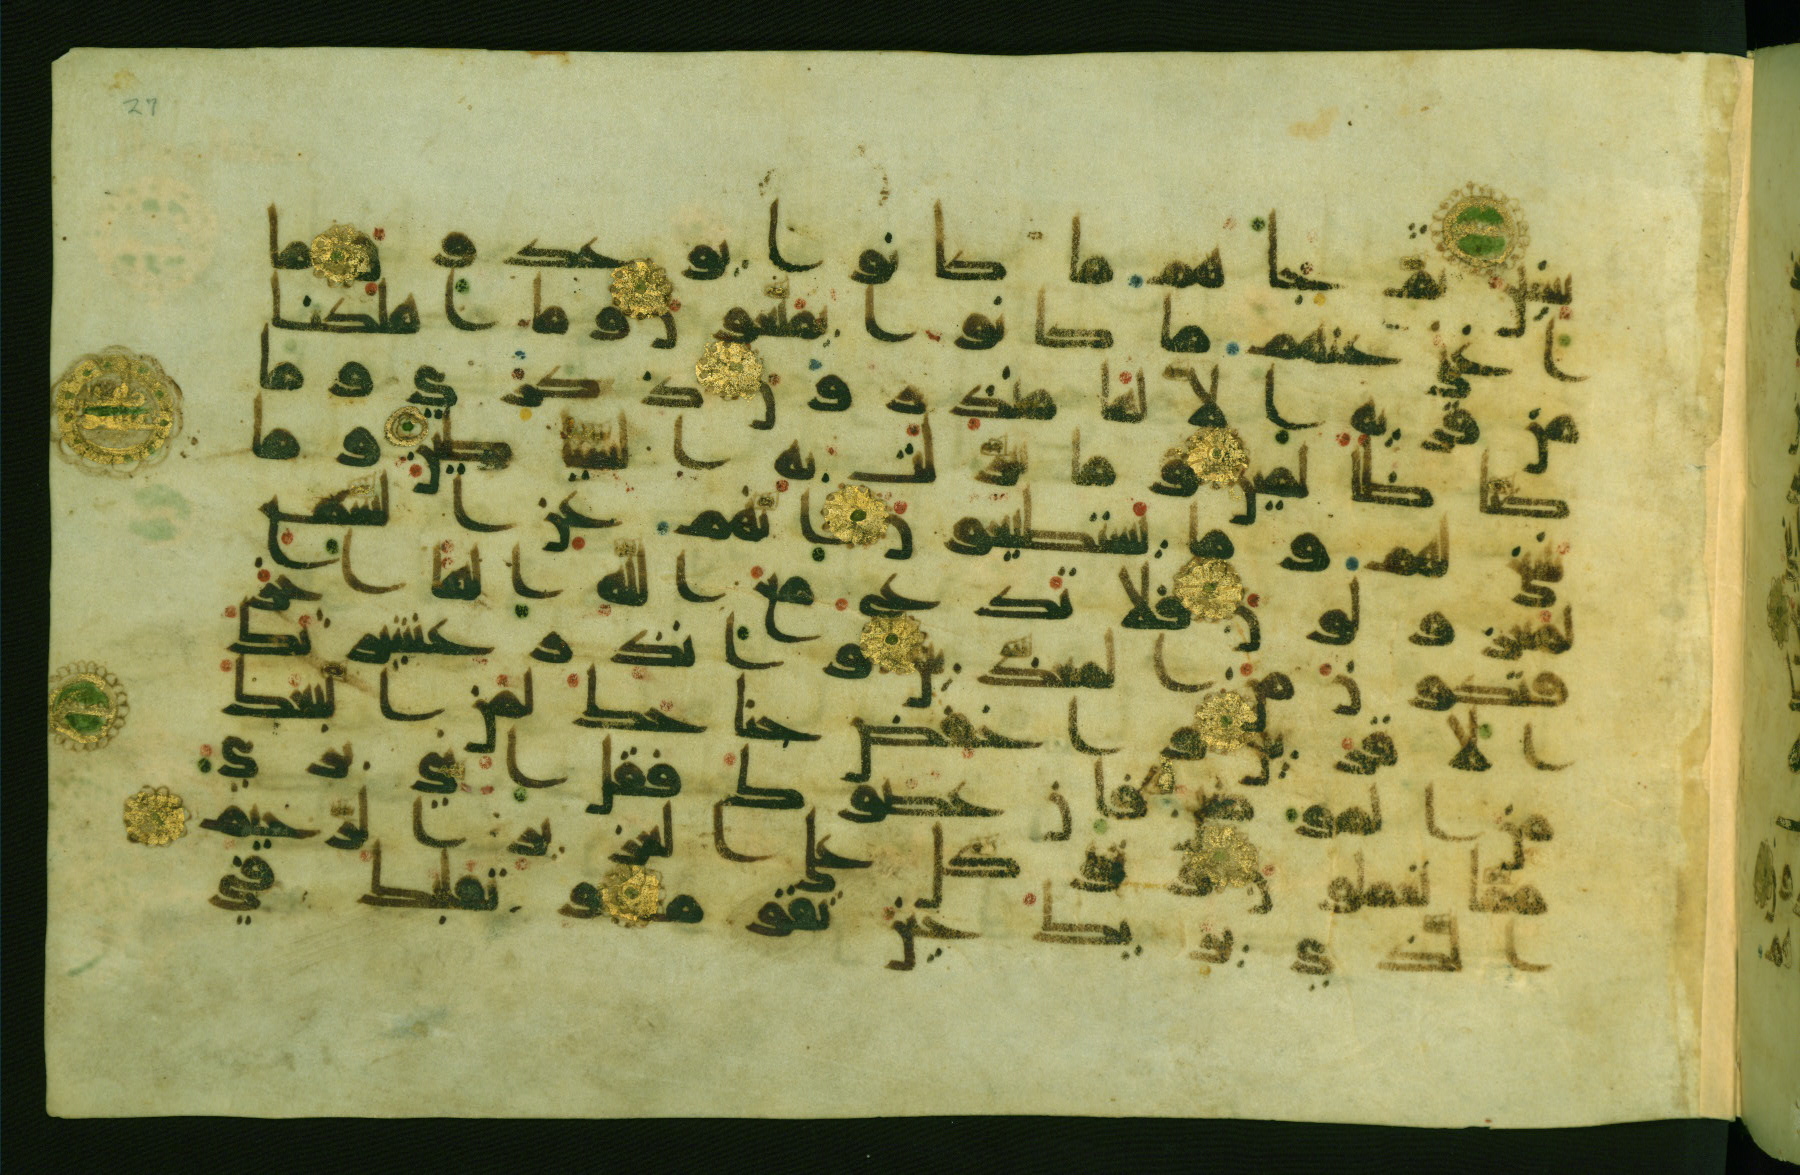 27
سنين ثم جاهم ما كانوا يوعدون ما
اغنى عنهم ما كانوا يمتعون وما اهلكنا
من قرية الا لها منذرون ذكرى وما
كنا ظلمين وما تنزلت به الشيطين وما
ينبغي لهم وما يستطيعون انهم عن السمع
لمعزولون فلا تدع مع الله الها اخر
فتكون من المعذبين وانذر عشيرتك
الاقربين واخفض جناحك لمن اتبعك
من المومنين فان عصوك فقل اني بري
مما تعملون وتوكل على العزيز الرحيم
الذي يريك حين تقوم وتقلبك في